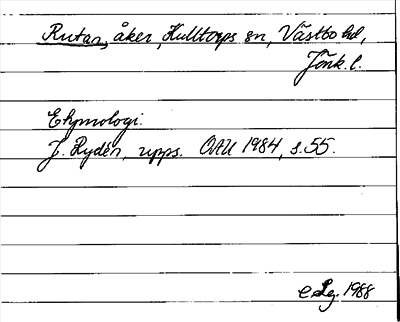 Rutan, åker, Kulltorps sn, Västbo hd,
Jönk. l.
Etymologi.
J. Rydén, upps. OAU 1984, s. 55.
1988